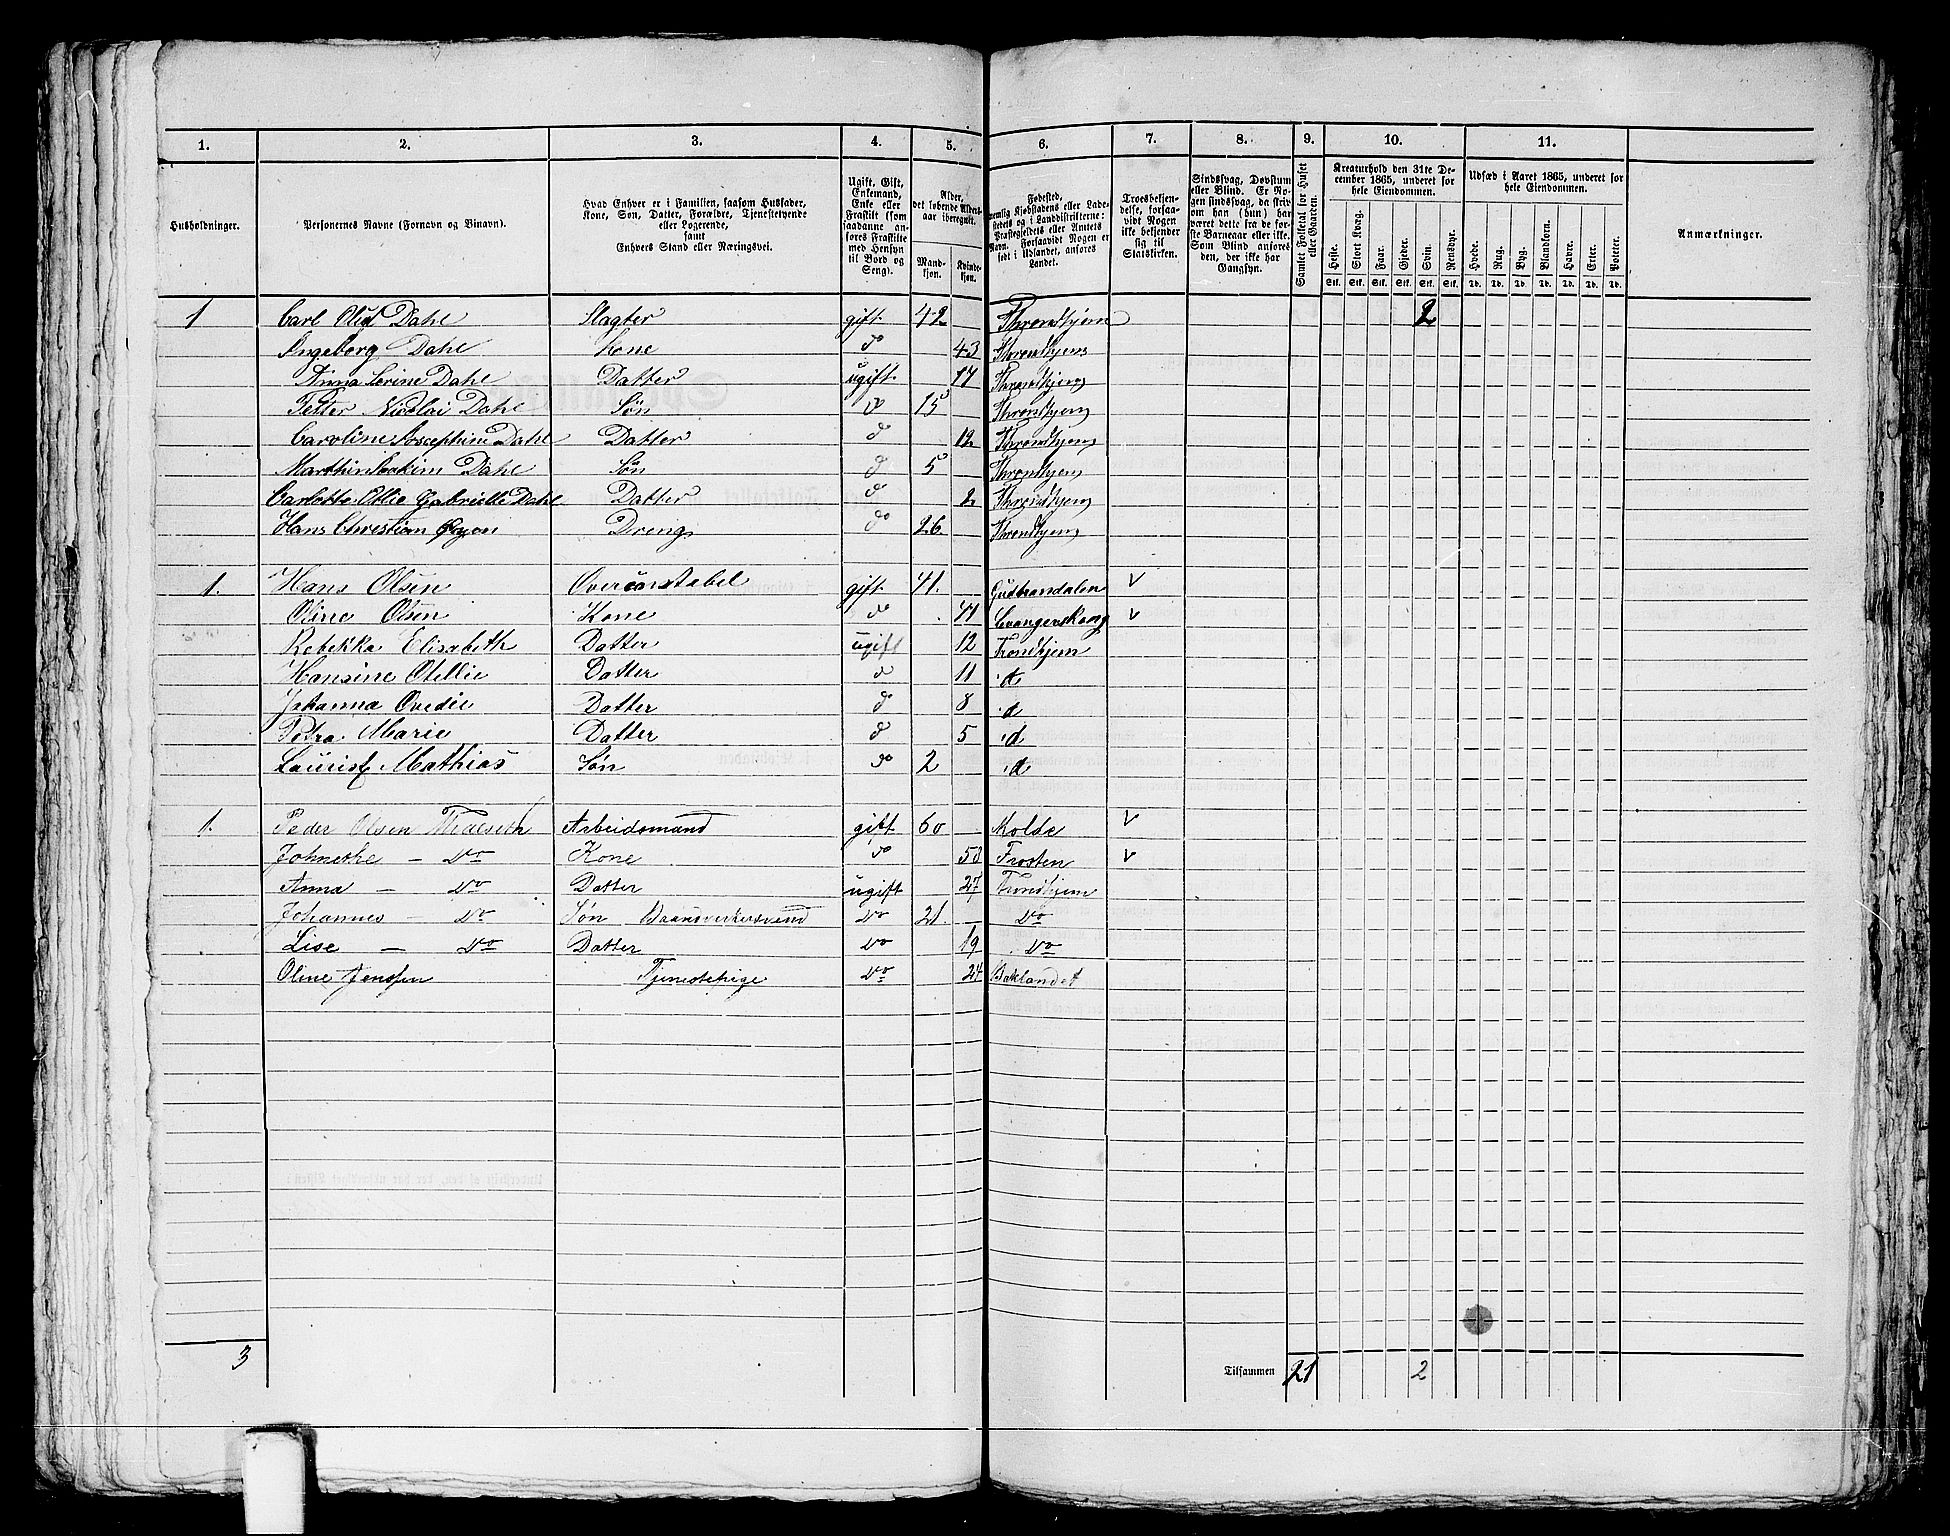 1. 2. 3. 4. 5. 6. 7. 8. 9. 10. 11.
Husholdninger.
Personernes Navne (Fornavn og Binavn).
Hvad Enhver er i Familien, saasom Husfader,
Kone, Søn, Datter, Forældre, Tjenestetyende
eller Logerende,
samt
Enhvers Stand eller Næringsvei.
Ugift, Gift,
Enkemand,
Enke eller
Fraskilt (som
saadanne an-
føres Fraskilte
med Hensyn
til Bord og
Seng).
Alder,
det løbende Alders-
aar iberegnet.
Mand-
kjøn.
Kvinde-
kjøn.
Fødested,
nemlig Kjøbstadens eller Lade-
stedets og i Landdistrikterne:
Præstegjeldets eller Amtets
Navn. Forsaavidt Nogen er
født i Udlandet, anføres
Landet.
Troesbekjen-
delse, forsaa-
vidt Nogen
ikke bekjender
sig til
Statskirken.
Sindssvag, Døvstum
eller Blind. Er No-
gen sindssvag, da skriv
om han (hun) har
været dette fra de før-
ste Barneaar eller ikke.
Som Blind anføres
den, der ikke har
Gangsyn.
Samlet Folketal for Huset
eller Gaarden.
Kreaturhold den 31te De-
cember 1865, underet for
hele Eiendommen.
Heste. Stort Kvæg. Faar. Gjeder. Svin. Rensdyr.
Stk. Stk. Stk. Stk. Stk. Stk.
Udsæd i Aaret 1865, underet for
hele Eiendommen.
Hvede. Rug. Byg. Blandkorn. Havre. Erter. Poteter.
Td. Td. Td. Td. Td. Td. Td.
Anmærkninger.
1 Carl Dahl Slagter gift 42 Throndhjem 2
Ingeborg Dahl Kone do 43 Throndhjem
Anna Serine Dahl Datter ugift 17 Throndhjem
Petter Nicolai Dahl Søn do 15 Throndhjem
Caroline Josephine Dahl Datter do 12 Throndhjem
Marthin Joakim Dahl Søn d 5 Throndhjem
Carlotte Otilie Gabrielle Dahl Datter do 2 Throndhjem
Hans Christian Dreng do 26. Throndhjem
1. Hans Olsen Overconstabel gift 41. Gudbrandalen V
Oline Olsen Kone do 41 Levangerskong V
Rebekka Elisabeth Datter ugift 12 Trondhjem
Hansine Otellie Datter do 11 d
Johanna Ovedie Datter do 8 d
Petra Marie Datter d 5 d
Lauris Mathias Søn do 2 d
1. Peder Olsen Arbeidsmand gift 60 Molde V
Johneshe - Do Kone do 58 Frosten V
Anna - Do Datter ugift 27 Trondhjem
Johannes - Do Søn Do 21. Do
Lise - Do Datter Do 19 Do
Oline Jenssen Tjenestepige Do 24 Baklandet
3 Tilsammen 21 2